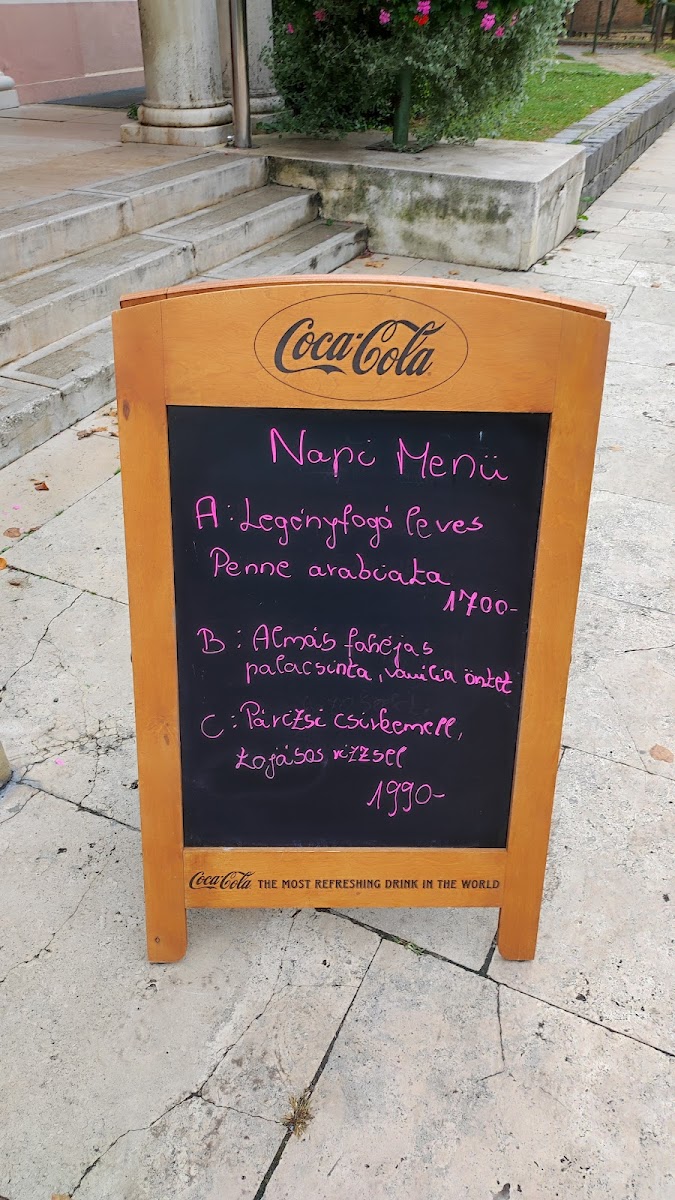 Coca-Cola
Napi Menü
A: Legényfogó leves
Penne arabiata
1700-
B: Almás fahéjas
palacsinta, vanília öntet
C: Párizsi csirkemell,
tojásos rizzsel
1990-
Coca-Cola THE MOST REFRESHING DRINK IN THE WORLD